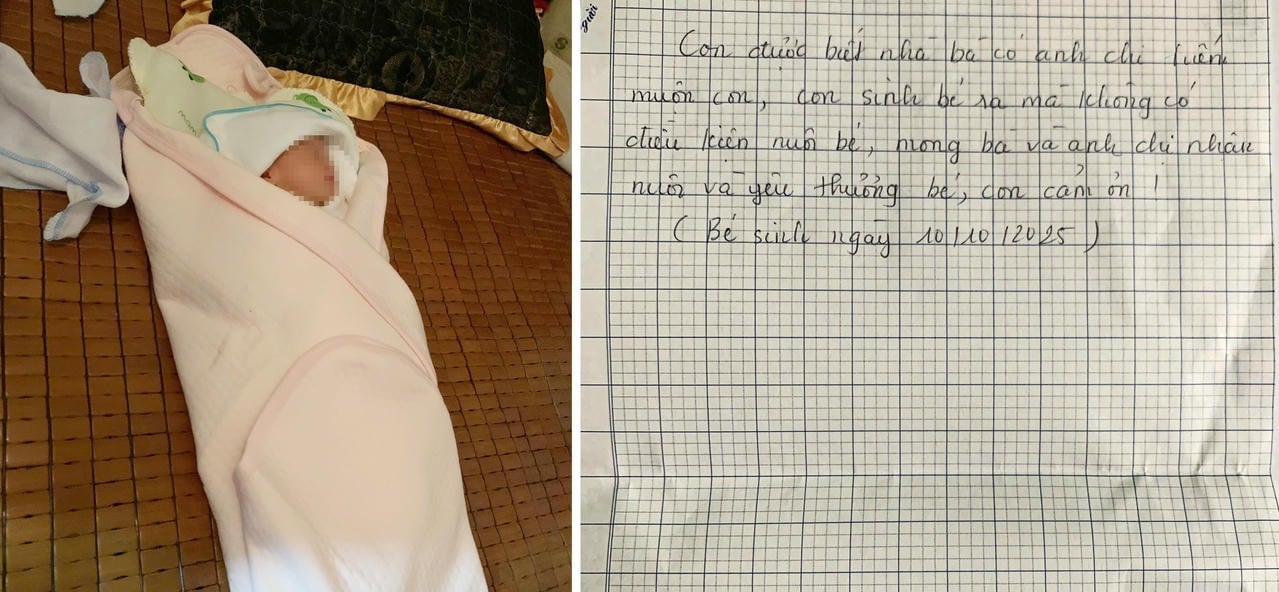 Con được biết nhà bà có anh chị hiếm
muộn con, con sinh bé ra mà không có
điều kiện nuôi bé, mong bà và anh chị nhận
nuôi và yêu thương bé, con cảm ơn !
( Bé sinh ngày 10/10/2025 )